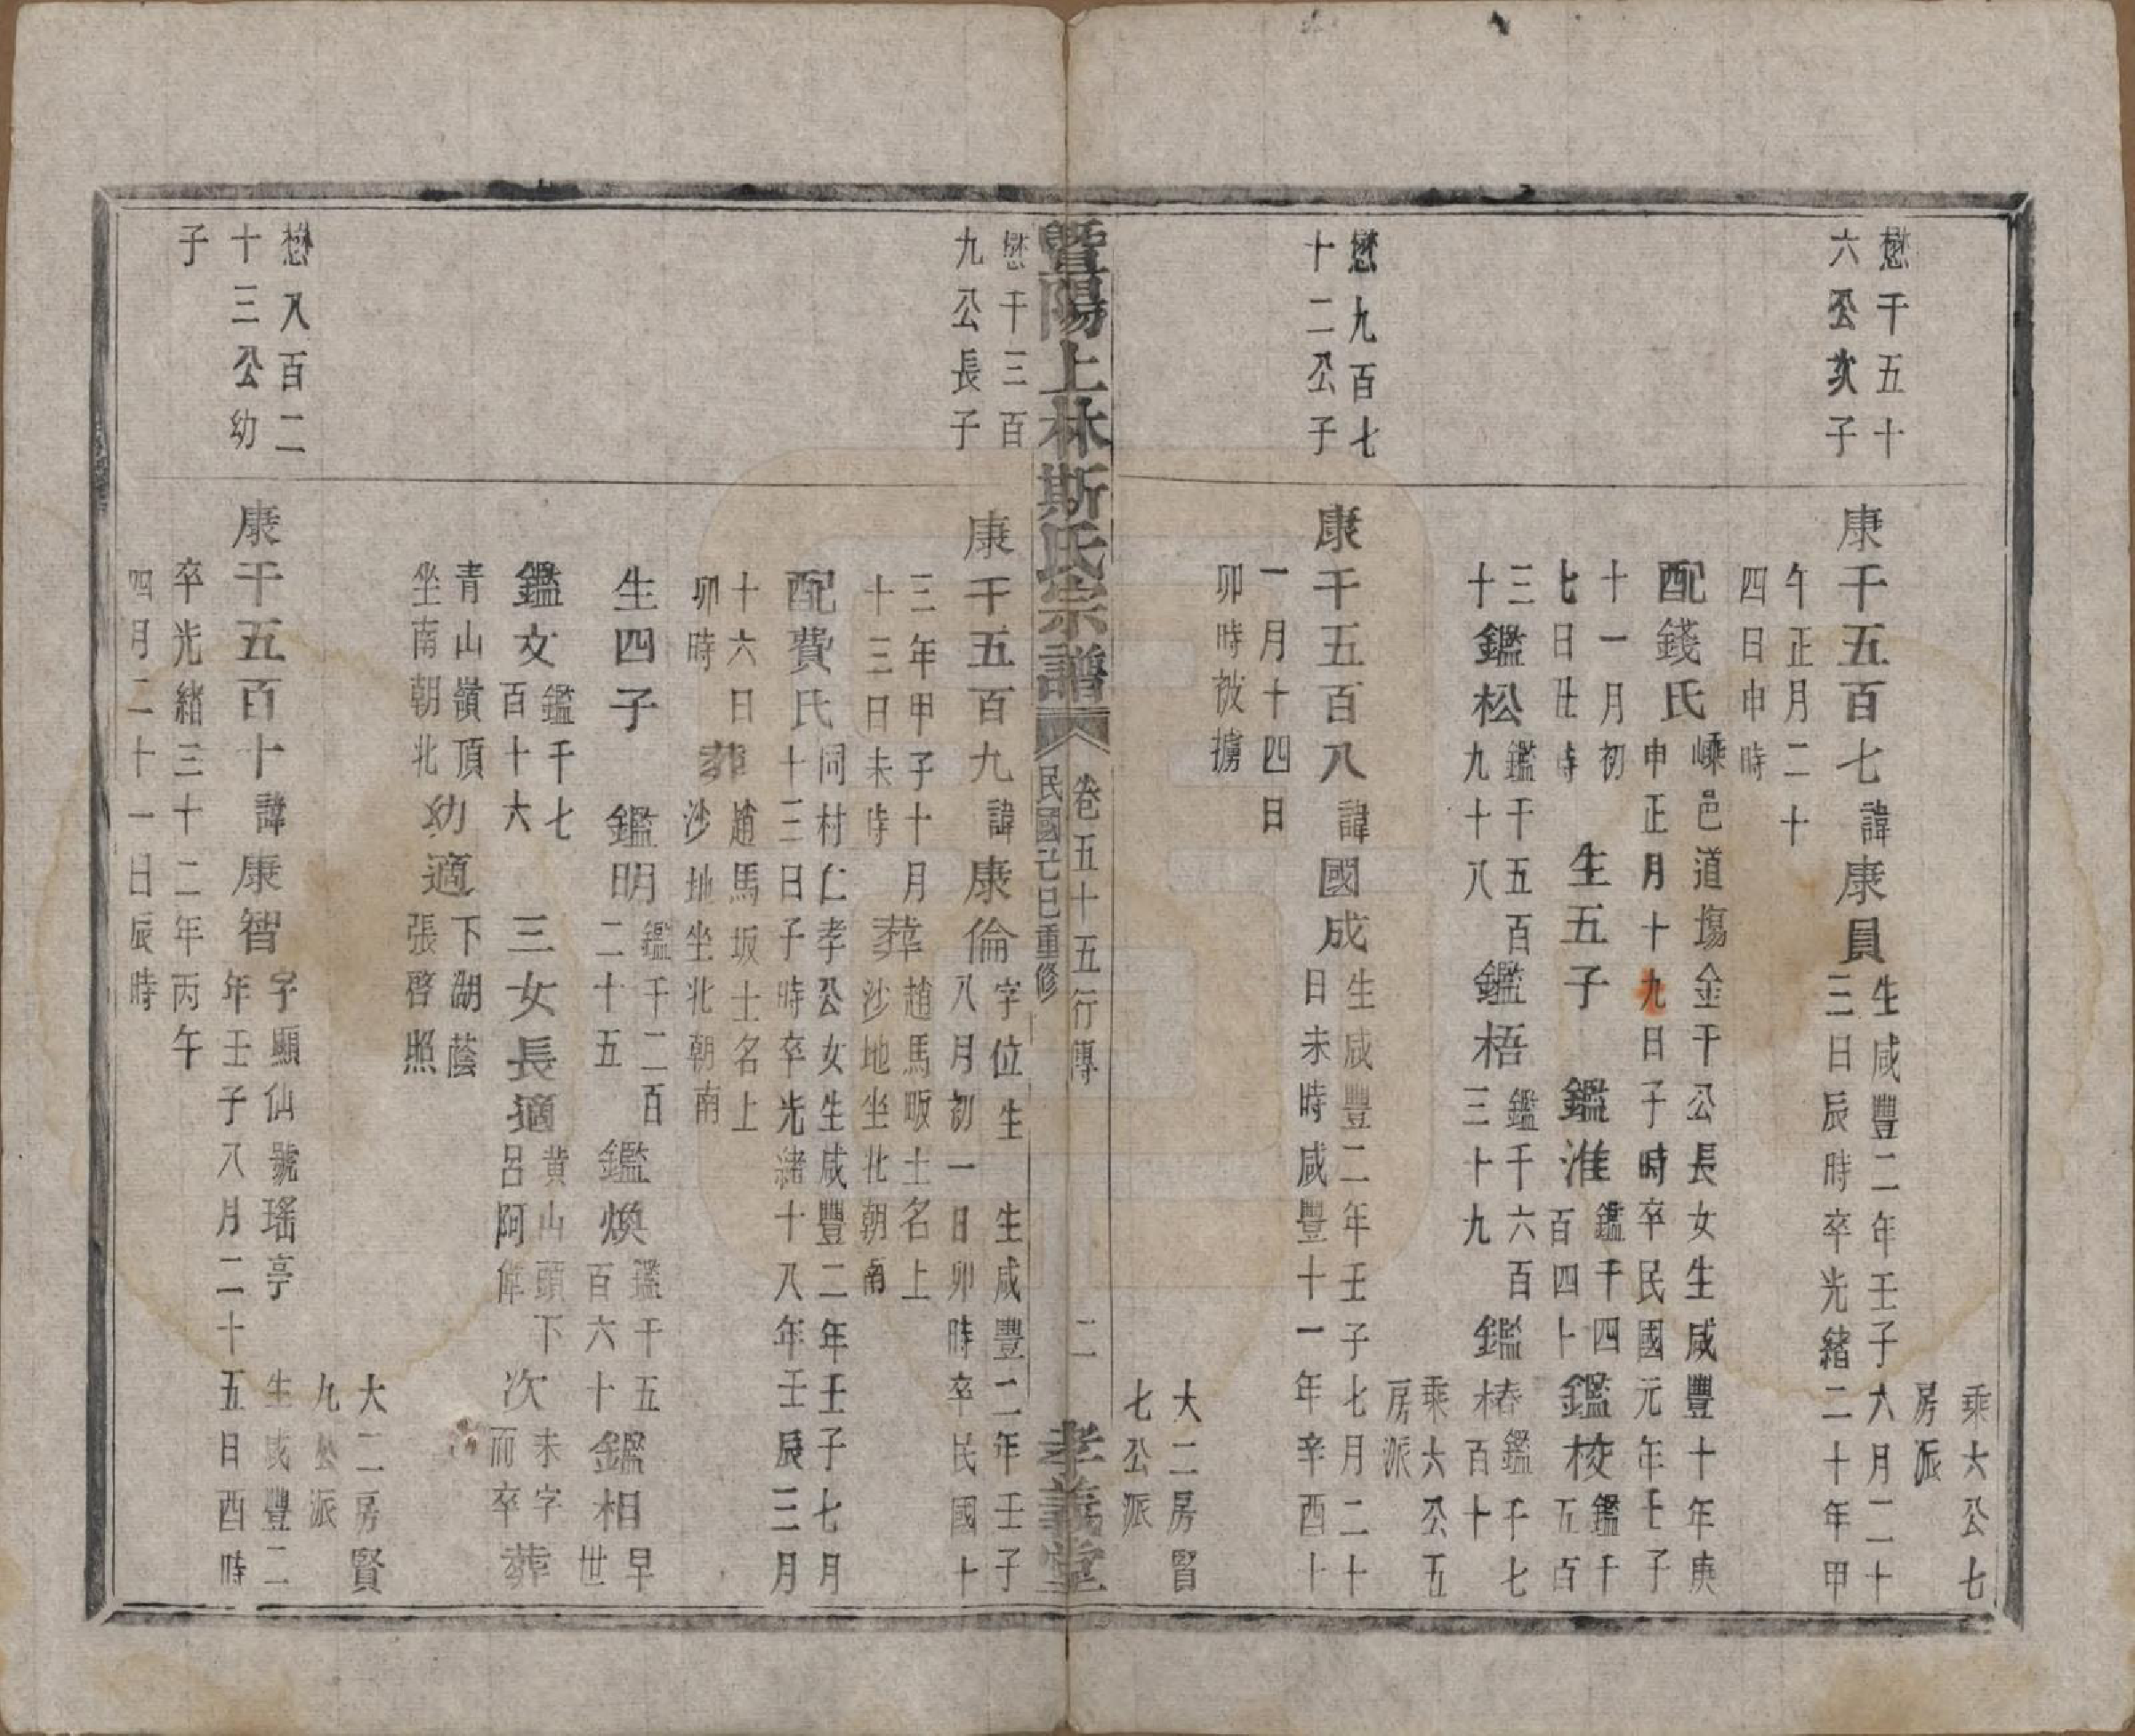 乘大公七
房派
懋千五十
六公次子
康千五百七諱康員
生咸豐二年壬子八月二十
三日辰時卒光緒二十年甲
午正月二十
四日申時
配錢氏
嵊邑道塲金干公長女生咸豐十年庚
申正月十九日子時卒民國元年壬子
十一月初
七日丑時
生五子
鑑淮
鑑千四
百四十
鑑校
鑑千
五百
三
十
鑑松
鑑千五百
九十八
鑑梧
鑑千六百
三十九
鑑椿
鑑千七
百十
乘六公五
房派
懋九百七
十二公子
康千五百八諱國成
生咸豐二年壬子七月二十
日未時咸豐十一年辛酉十
一月十四日
卯時被擄
大二房賢
七公派
暨陽上林斯氏宗譜
卷五十五行傳
民國己巳重修
二
孝義堂
懋千三百
九公長子
康千五百九諱康倫
字位生 生咸豐二年壬子
八月初一日卯時卒民國十
三年甲子十月
十三日未時
葬
趙馬畈土名上
沙地坐北朝南
配費氏
同村仁孝公女生咸豐二年壬子七月
十三日子時卒光緒十八年壬辰三月
十六日
卯時
葬
趙馬坂土名上
沙地坐北朝南
生四子
鑑明
鑑千二百
二十五
鑑煥
鑑千五
百六十
鑑相
早
世
鑑文
鑑千七
百十六
三女長適
黄山頭下
呂阿偉
次
未字
而卒
葬
青山嶺頂
坐南朝北
幼適
下湖蔭
張啓照
大二房賢
九公派
懋八百二
十三公幼
子
康千五百十諱康智
字顯仙號瑤亭 生咸豐二
年壬子八月二十五日酉時
卒光緒三十二年丙午
四月二十一日辰時